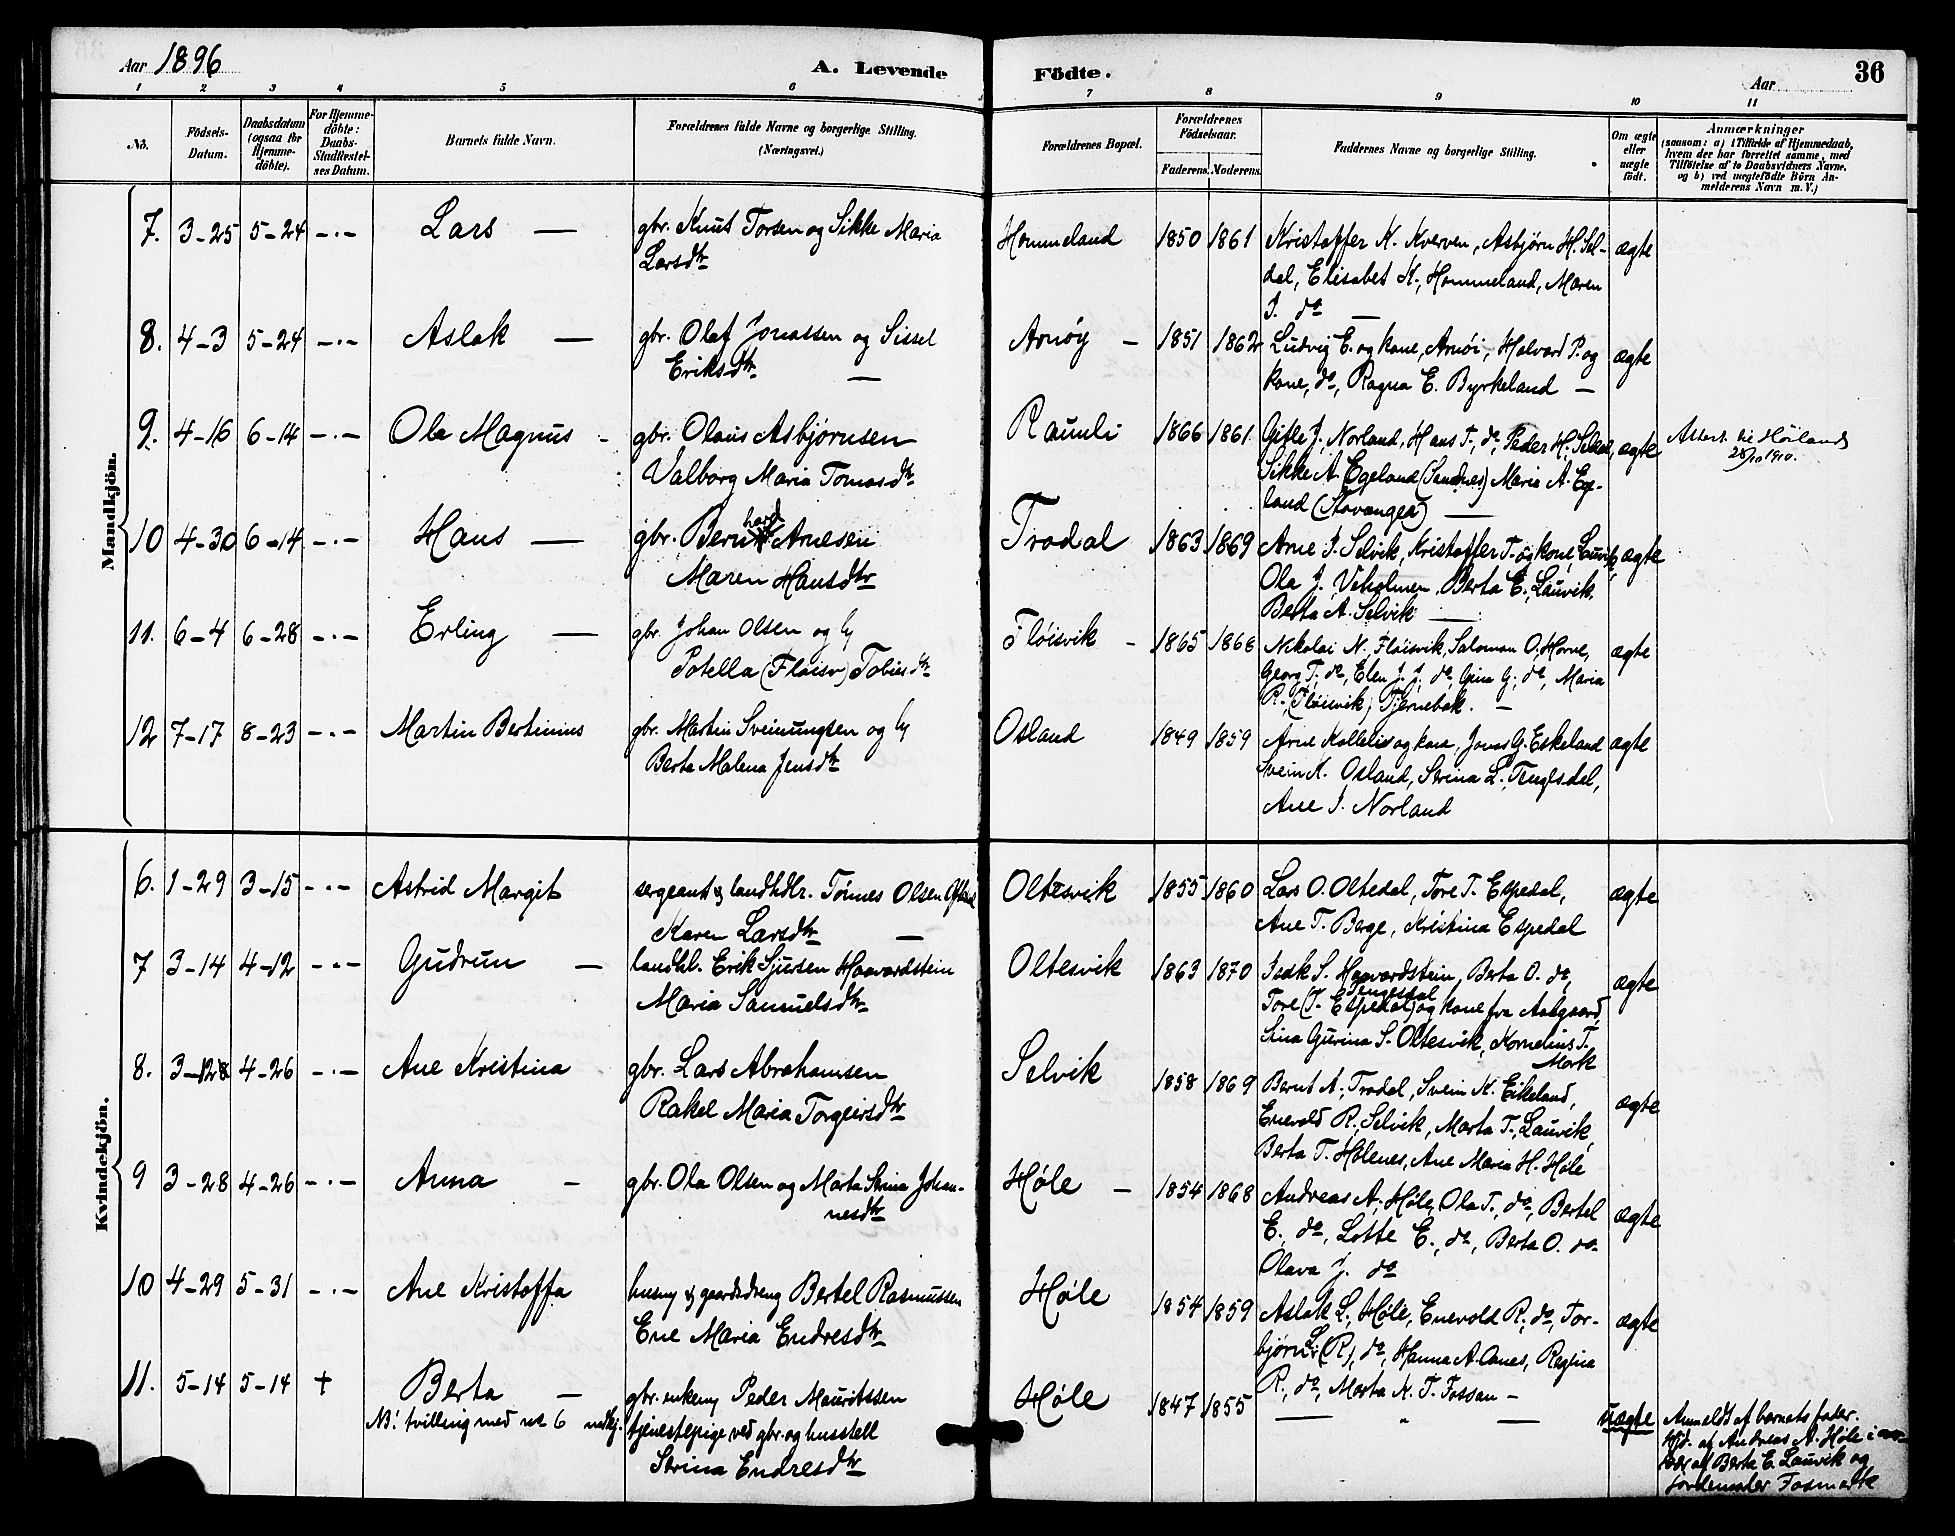 Aar 1896
A. Levende
Födte.
Aar
36
1 2 3 4 5 6 7 8 9 10 11
No.
Födsels-
Datum.
Daabsdatum
(ogsaa for
Hjemme-
döbte).
For Hjemme-
döbte:
Daabs-
Stadfæstel-
ses Datum.
Barnets fulde Navn.
Forældrenes fulde Navne og borgerlige Stilling.
(Næringsvei.)
Forældrenes Bopæl.
Forældrenes
Födselsaar.
Faderens. Moderens.
Faddernes Navne og borgerlige Stilling.
Om ægte
eller
uægte
født.
Anmærkninger
(saasom: a) i Tilfælde af Hjemmedaab,
hvem der har forrettet samme, med
Tilföielse af to Daabsvidners Navne.
og b) ved uægtefödte Börn An-
melderens Navn m. V.)
Mandkjön.
7. 3-25 5-24 -·- Lars — gbr. Knut Torsen og Sikke Maria
Larsdtr
Hommeland 1850 1861 Kristoffer K. Kverven, Asbjørn H. Sel-
dal, Elisabet K., Hommeland, Maren
I. do —
ægte
8. 4-3 5-24 -·- Aslak — gbr. Olaf Jonassen og Sissel
Eriksdtr —
Arnøy — 1851 1862 Ludvig E. og kone, Arnøi, Halvard P. og
kone, do, Ragna E. Byrkeland —
ægte
9. 4-16 6-14 -·- Ole Magnus - gbr. Olaus Asbjørnsen
Valborg Maria Tomasdtr
Raunli 1866 1861 Gitle J. Norland, Hans T., do, Peder H. Seldal,
Sikke A. Egeland (Sandnes) Maria A. Ege-
land (Stavanger) —
ægte
Attest til Høiland
28/10 1910.
10 4-30 6-14 -·- Hans — gbr. Bernhard Arnesen
Maren Hansdtr
Trodal 1863 1869 Arne I. Selvik, Kristoffer T. og kone, Lauvik,
Ola J. Veholmen, Berta E. Lauvik,
Berta A. Selvik —
ægte
11. 6-4 6-28 -·- Erling — gbr. Johan Olsen og
Potella (Fløisv) Tobiasdtr
Fløisvik - 1865 1868 Nikolai N. Fløisvik, Salomon O. Horve,
Georg T., do, Elen J. J., do, Gina G., do, Maria
R. (Fløisvik) Tjernebak. —
ægte
12 7-17 8-23 -·- Martin Bertinius gbr. Martin Sveinungsen og
Berta Malena Jensdtr
Osland 1849 1859 Arne Kollelie og kone, Jonas G. Eskeland
Svein K. Osland, Serina L. Tengesdal,
Ane I. Norland
ægte
Kvindekjön.
6. 1-29 3-15 -·- Astrid Margit sergeant & landhdlr. Tønnes Olsen
Karen Larsdtr —
Oltesvik 1855 1860 Lars O. Oltedal, Tore T. Espedal,
Ane T. Berge, Kristina Espedal
ægte
7 3-14 4-12 -·- Gudrun — landhl. Erik Sjursen Haavardstein
Maria Samuelsdtr
Oltesvik 1863 1870 Isak S. Haavardstein, Berta O. do,
Tengesdal
Tore (T. Espedal) og kone fra Aalgaard,
Sina Gurina S. Oltesvik, Kornelius T.
Mork
ægte
8. 3-12 4-26 -·- Ane Kristina gbr. Lars Abrahamsen
Rakel Maria Torgeirsdtr
Selvik 1858 1869 Bernt A. Trodal, Svein K. Eikeland,
Enevold R. Selvik, Marta T. Lauvik,
Berta T. Holenes, Ane Maria H. Høle
ægte
9 3-28 4-26 -·- Anna — gbr. Ola Olsen og Marta Serina Johan-
nesdtr
Høle — 1854 1868 Andreas A. Høle, Ola T., do, Bertel
E., do, Lotte E., do, Berta O. do
Olava J. do
ægte
10 4-29 5-31 -·- Ane Kristoffa husmy & gaardsdreng Bertel Rasmussen
Ene Maria Endresdtr
Høle 1854 1859 Aslak L. Høle, Enevold R., do, Tor-
bjørn L. (R), do, Hanna A. Aanes, Regina
R., do, Marta K. T. Fossan —
ægte
11. 5-14 5-14 + Berta — gbr. enkem Peder Mauritssen
NB! tvilling med no 6 tjenestepige ved gbr. og husstell
Serina Endresdtr
Høle 1847 1855 — " — uægte
Anmeldt af barnets fader.
Hjd. af Andreas A. Høle i nær-
vær af Berta E. Lauvik og
jordemoder Fosmark